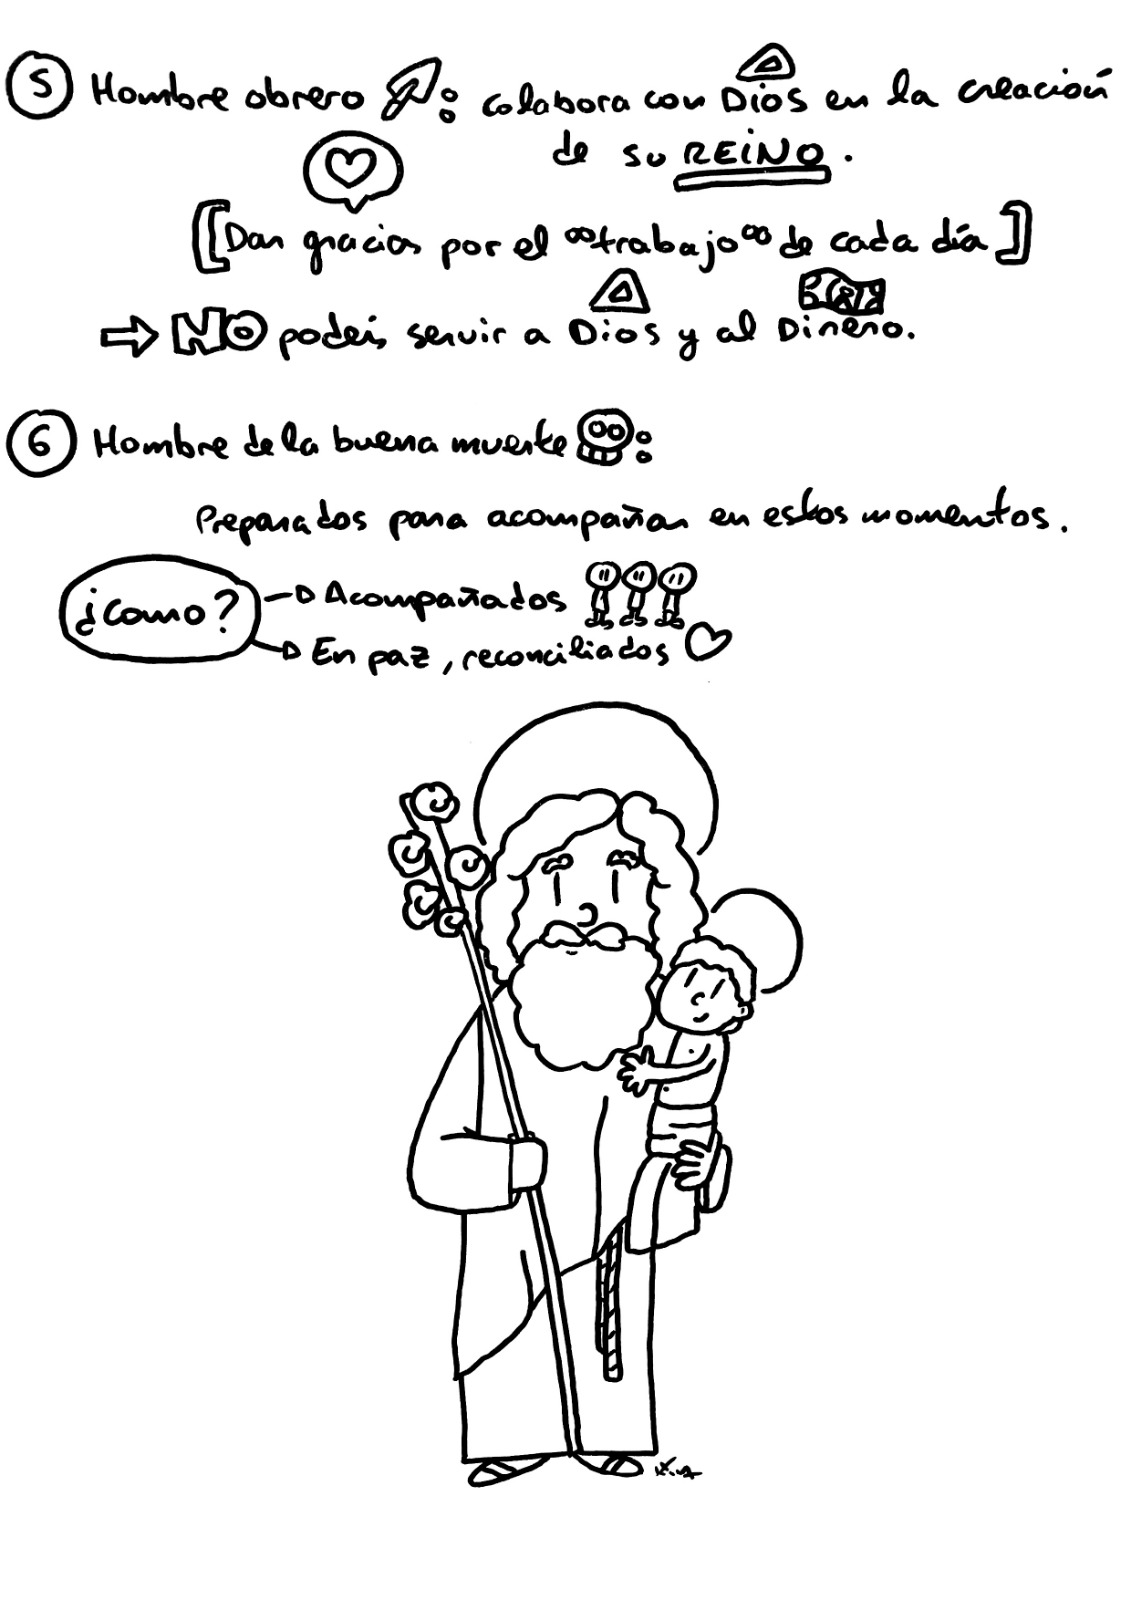 5 Hombre obrero: colabora con Dios en la creación
de su REINO.
[Dar gracias por el trabajo de cada día]
⇒ NO podéis servir a Dios y al Dinero.
6 Hombre de la buena muerte:
Preparados para acompañar en estos momentos.
¿como? → Acompañados
→ En paz, reconciliados